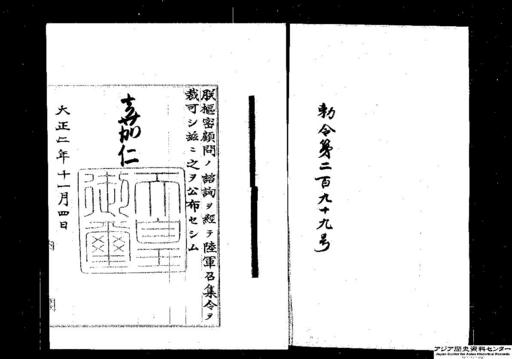 勅令第二百九十九号
朕枢密顧問ノ諮詢ヲ経テ陸軍召集令ヲ
裁可シ茲ニ之ヲ公布セシム
嘉仁
天皇御璽
大正二年十一月四日
アジア歴史資料センター
Japan Center for Asian Historical Records